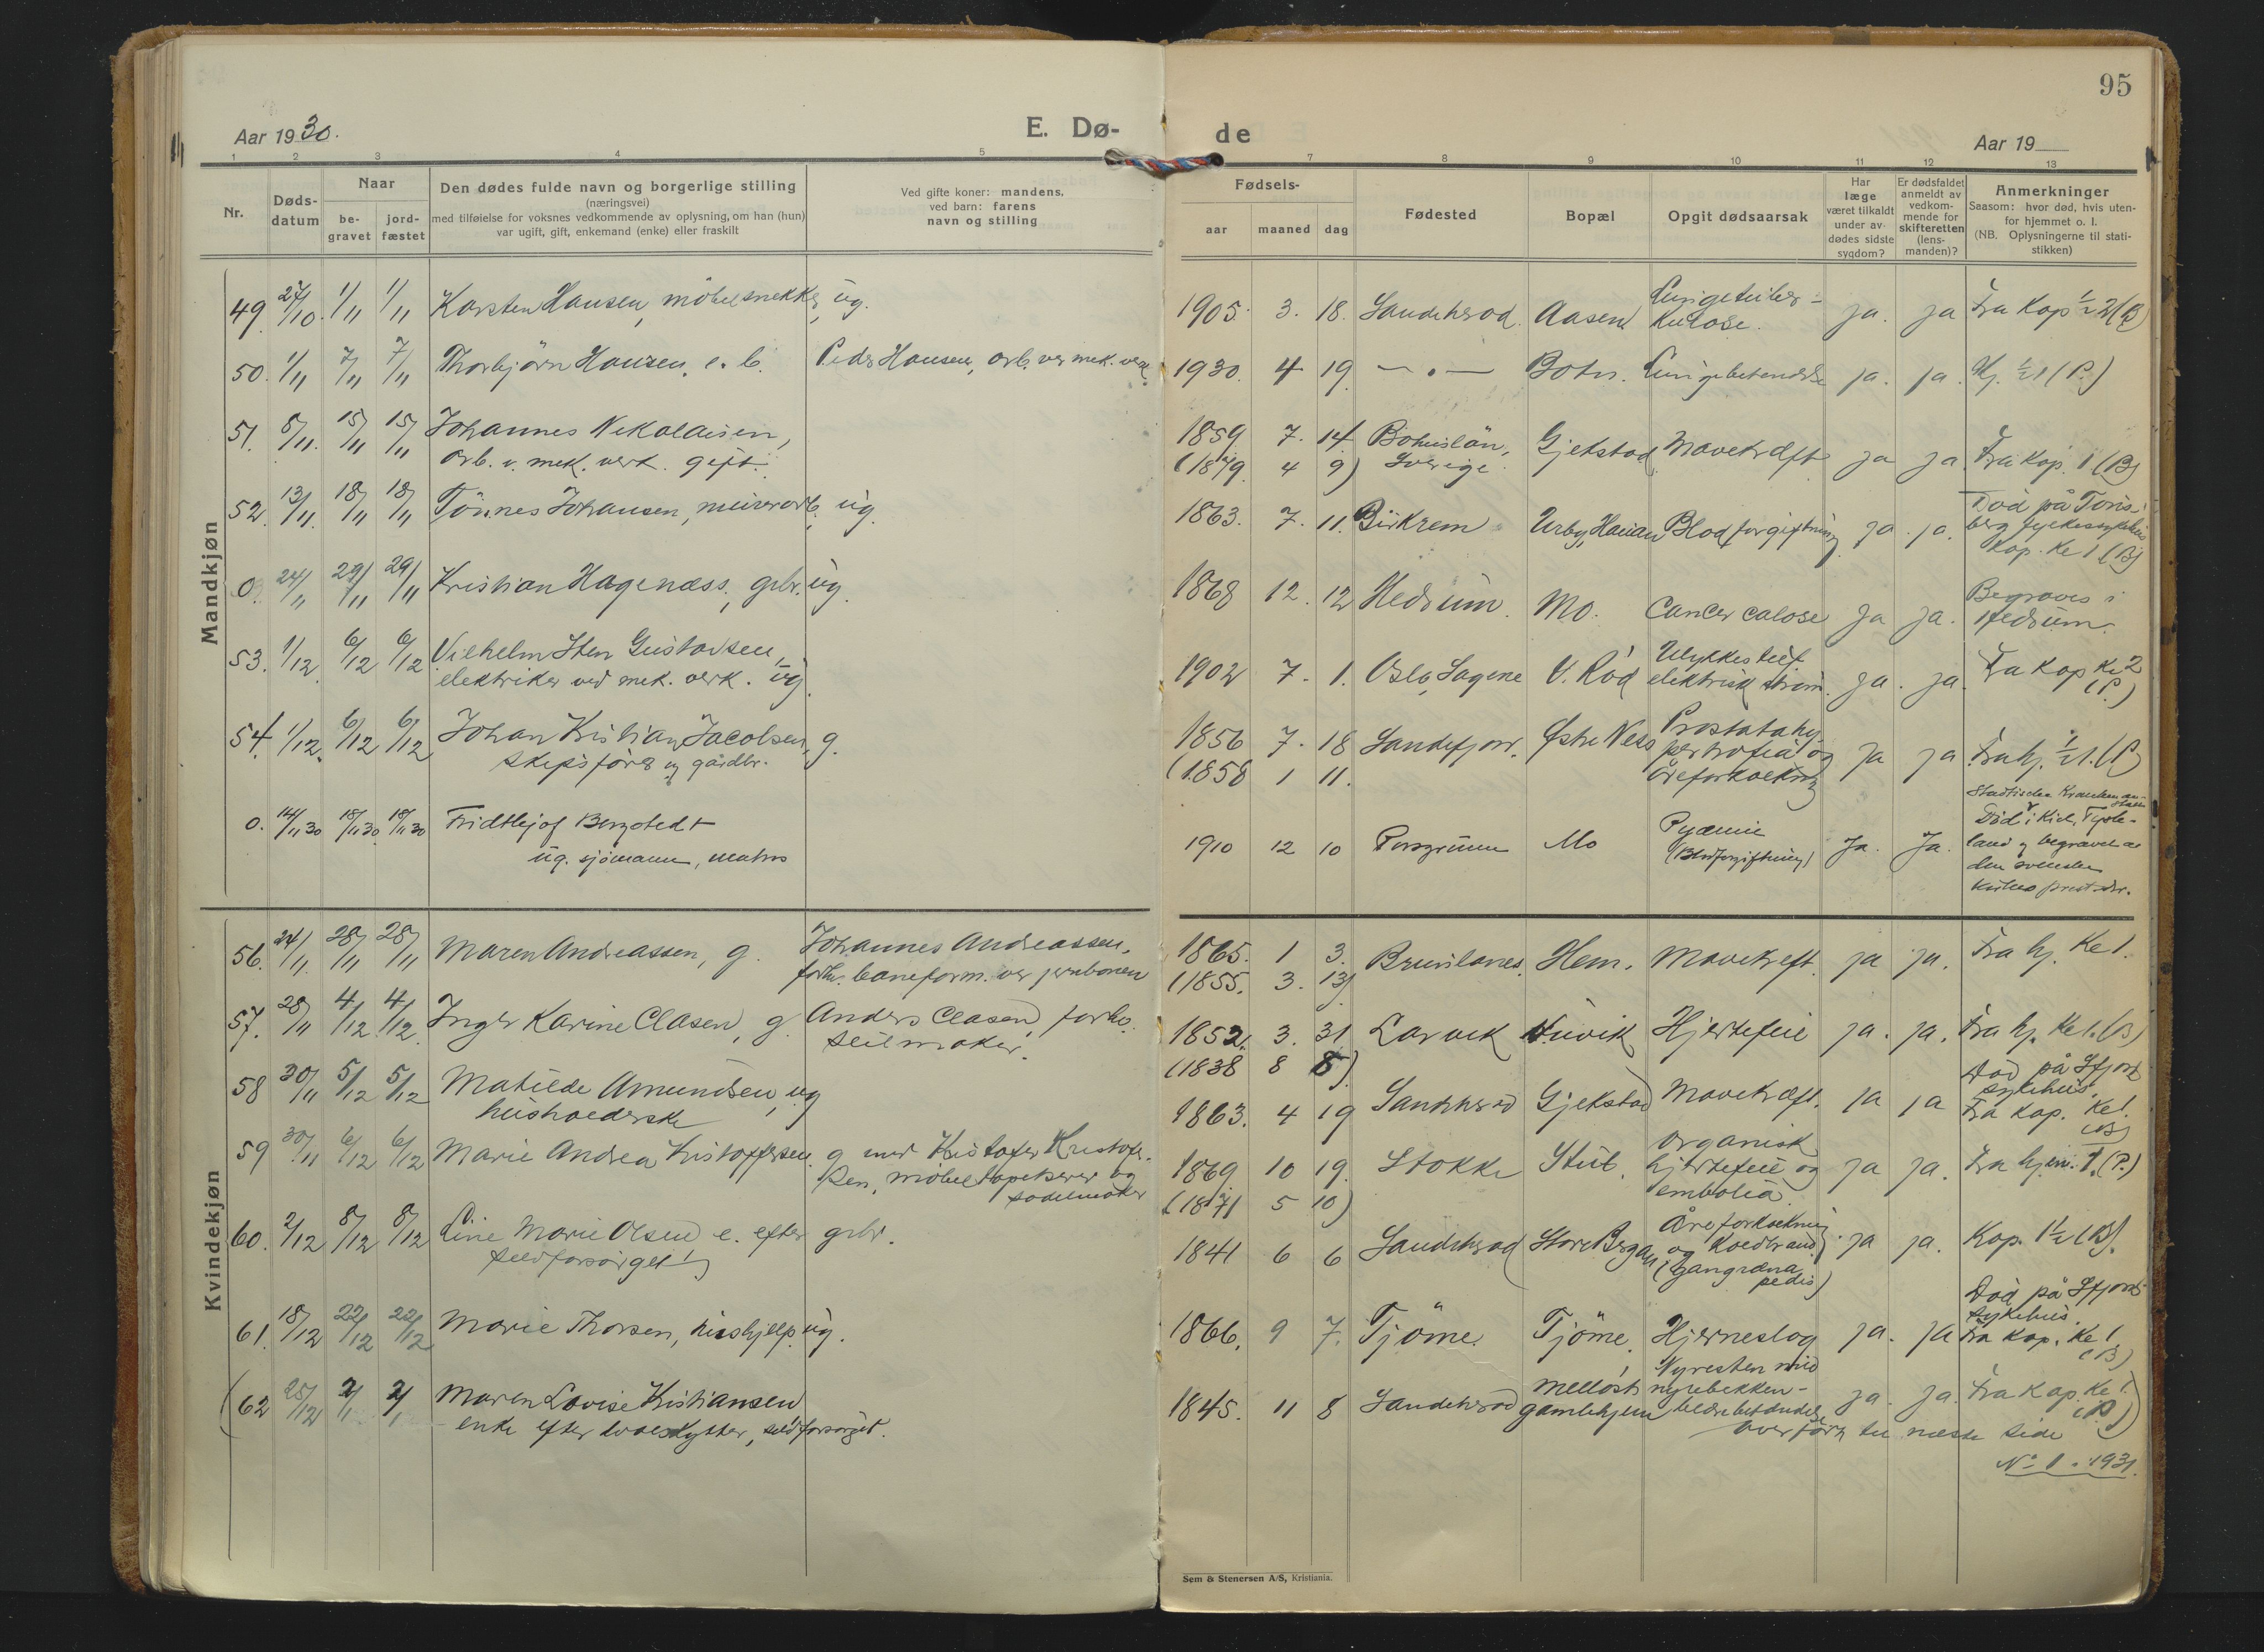 95
Aar 1930.
E. Dø-
de
Aar 19
1 2 3 4 5 7 8 9 10 11 12 13
Nr.
Døds-
datum
Naar
be-
gravet
jord-
fæstet
Den dødes fulde navn og borgerlige stilling
(næringsvei)
med tilføielse for voksnes vedkommende av oplysning, om han (hun)
var ugift, gift, enkemand (enke) eller fraskilt
Ved gifte koner: mandens,
ved barn: farens
navn og stilling
Fødsels-
aar maaned dag
Fødested
Bopæl
Opgit dødsaarsak
Har
læge
været tilkaldt
under av-
dødes sidste
sygdom?
Er dødsfaldet
anmeldt av
vedkom-
mende for
skifteretten
(lens-
manden)?
Anmerkninger
Saasom: hvor død, hvis uten-
for hjemmet o. l.
(NB. Oplysningerne til stati-
stikken)
Mandkjøn
49. 27/10. 1/11 1/11 Karsten Hansen, möbelsnekker, ug.
1905. 3. 18. Sandeherod. Aasen Lungetuber-
kulose. ja. ja Fra Kap ½ 2 (B)
50. 1/11 7/11 7/11 Thorbjörn Hansen, e. b. Peder Hansen, arb. ved mek. verk.
1930. 4 19. — " — Botn. Lungebetendelse ja. ja. Hj. ½ 1 (P.)
51. 8/11. 15/11 15/11 Johannes Nikolaisen,
arb. v. mek. verk. gift.
1859 7. 14. Bohuslän, Gjekstad Mavekræft ja ja. Fra Kap. 1 (B)
(1879 4 9) Sverige.
52. 13/11. 18/11 18/11 Tönnes Johansen, murerarb. ug.
1863. 7. 11. Birkrem Urby, Hauan Blodforgiftning ja. ja.
Död på Töns-
berg fylkessykehus
Kap. Kl 1 (B)
0. 24/11 29/11 29/11 Kristian Hagenæss, gbr. ug.
1868 12. 12 Hedrum. Mo. Cancer ja ja.
Begraves i
Hedrum.
53. 1/12. 6/12 6/12 Vilhelm Sten Gustavsen,
elektriker ved mek. verk. ug.
1902 7. 1. Oslo, Sagene V. Röd Ulykkestilf.
elektrisk ström. ja. ja. Fra Kap Kl 2
(P.)
54. 1/12. 6/12 6/12 Johan Kristian Jacobsen, g.
skipsförer og gårdbr.
1856 7. 18 Sandefjord. Østre Nes Prostatahy-
pertrofia og
åreforkalkning ja ja Fra hj. ½ 1. (P)
(1858 1 11.
0. 14/11 30 18/11 30 18/11 30 Fridthjof Bergstedt
ug. sjömann, matros
1910 12 10 Porsgrunn Mo Pyæmie
(Blodforgiftning) Ja. Ja.
Död i Kiel, Tysk-
land og begravet av
den svenske
kirkes prest der.
Kvindekjøn
56. 24/11. 28/11 28/11 Maren Andreassen, g. Johannes Andreassen,
forhv. baneform. ved jernbanen
1865. 1 3. Brunlanes. Hem. Mavekreft. ja ja. Fra hj. Kl 1.
(1855. 3. 13)
57. 28/11 4/12 4/12 Inger Karine Clasen, g. Anders Clasen, forhv.
seilmaker.
1852. 3. 31 Larvik Hjertefeil ja. ja. Fra hj. Kl 1. (B)
(1838 8 8)
58 30/11 5/12 5/12 Matilde Amundsen, ug
husholderske
1863. 4 19 Sandeherod Gjekstad Mavekræft. ja ja
Död på Sfjord
sykehus.
Fra Kap. Kl 1.
(B)
59 30/11 6/12 6/12 Marie Andrea Kristoffersen. g. med Kristofer Kristofer-
sen, möbeltapetserer og
salmaker
1869 10 19. Stokke Stub. organisk
hjertefeil og
embolia ja ja. Fra hjem. 1. (P.)
(1871 5 10)
60. 2/12 8/12 8/12 Line Marie Olsen e. efter gbr.
selvforsörget
1841 6 6 Sandeherod Store Bergan Åreforkalkning
og Koldbrand
(gangræna
pedis) ja ja. Kap. 1½ (B).
61. 18/12 22/12 22/12 Marie Thorsen, hushjelp. ug.
1866. 9 7. Tjöme. Tjöme. Hjerneslag ja. ja
Död på Sfjord
sykehus.
Fra Kap. Kl 1
(B)
(62 25/12 2/1 2/1 Maren Lovise Kristiansen
enke efter hvalskytter, selvforsörget.
1845. 11 8 Sandeherod Mellöst
gamlehjem Nyresten med
nyrebekken-
betendelse ja. ja. Fra Kap. Kl 1.
(P.)
Overfört til næste side
No 1. 1931.
Sem & Stenersen A/S, Kristiania.